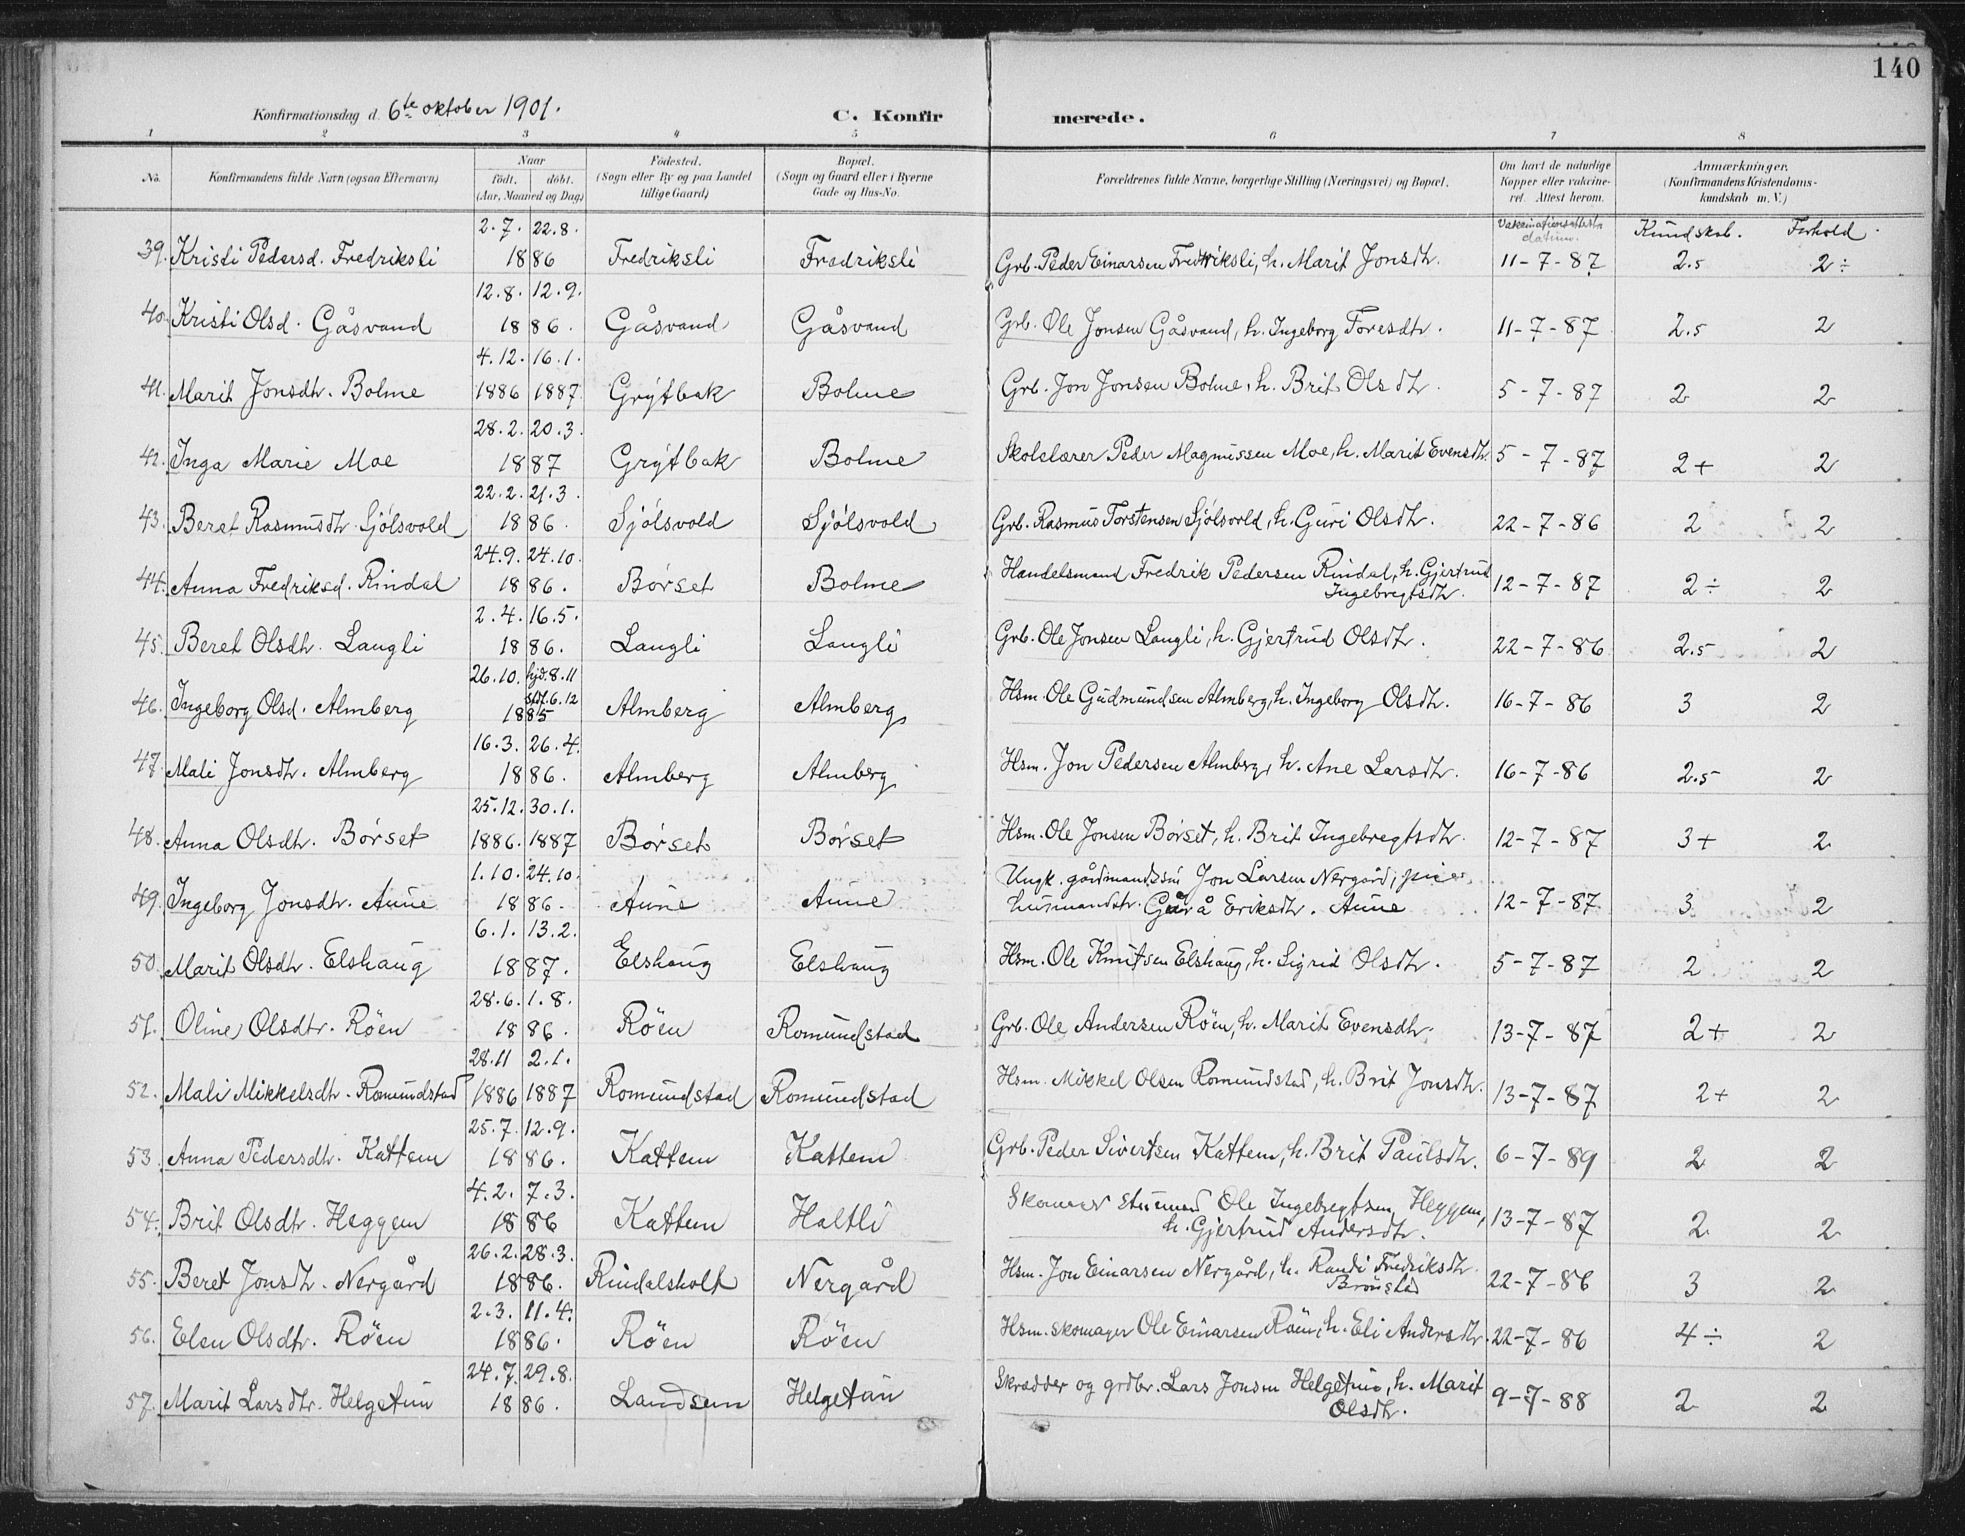 140
Konfirmationsdag d. 6te oktober 1901.
C. Konfirmerede.
1 2 3 4 5 6 7 8
No. Konfirmandens fulde Navn (ogsaa Efternavn) Naar født. døbt. (Aar, Maaned og Dag) Fødested. (Sogn eller By og paa Landet tillige Gaard) Bopæl. (Sogn og Gaard eller i Byerne Gade og Hus-No. Forældrenes fulde Navne, borgerlige Stilling (Næringsvei) og Bopæl. Om havt de naturlige Kopper eller vakcineret. Attest herom. Anmærkninger. (Konfirmandens Kristendomskundskab m. V.)
Vakcinationsattestens datum. Kundskab. Forhold.
2.7. 22.8.
39. Kristi Pedersd. Fredriksli 1886 Fredriksli Fredriksli Grb. Peder Einarsen Fredriksli, h. Marit Jonsdtr. 11-7-87 2.5 2÷
12.8. 12.9.
40. Kristi Olsd. Gåsvand 1886. Gåsvand Gåsvand Grb. Ole Jonsen Gåsvand, h. Ingeborg Toresdtr. 11-7-87 2.5 2
4.12. 16.1.
41. Marit Jonsdtr. Bolme 1886 1887 Grýtbak Bolme Grb. Jon Jonsen Bolme, h. Brit Olsdtr. 5-7-87 2 2
28.2. 20.3.
42. Inga Marie Moe 1887 Grýtbak Bolme Skolelærer Peder Magnussen Moe, h. Marit Evensdtr. 5-7-87 2+ 2
22.2. 21.3.
43. Beret Rasmusdtr. Sjólsvold 1886. Sjólsvold Sjólsvold Grb. Rasmus Torstensen Sjólsvold, h. Guri Olsdtr. 22-7-86 2 2
24.9. 24.10.
44. Anna Fredriksd. Rindal 1886. Børset Bolme Handelsmand Fredrik Pedersen Rindal, h. Gjertrud Ingebregtsdtr. 12-7-87 2÷ 2
2.4. 16.5.
45. Beret Olsdtr. Langli 1886. Langli Langli Grb. Ole Jonsen Langli, h. Gjertrud Olsdtr. 22-7-86 2.5 2
26.10. hjd. 8.11
46. Ingeborg Olsd. Almberg 1885 6.12 Almberg Almberg Hsm. Ole Gudmundsen Almberg, h. Ingeborg Olsdtr. 16-7-86 3 2
16.3. 26.4.
47. Mali Jonsdtr. Almberg 1886. Almberg Almberg Hsm. Jon Pedersen Almberg, h. Ane Larsdtr. 16-7-86 2.5 2
25.12. 30.1.
48. Anna Olsdtr. Børset 1886. 1887 Børset Børset Hsm. Ole Jonsen Børset, h. Brit Ingebregtsdtr. 12-7-87 3+ 2
1.10. 24.10.
49. Ingeborg Jonsdtr. Aune 1886. Aune Aune Ungk. gårdmandssøn Jon Larsen Nergård, pige husmandsdtr. Eriksdtr. Aune 12-7-87 3 2
6.1. 13.2.
50. Marit Olsdtr. Elshaug 1887. Elshaug Elshaug Hsm. Ole Knutsen Elshaug, h. Sigrid Olsdtr. 5-7-87 2 2
28.6. 1.8.
51. Oline Olsdtr. Röen 1886. Röen Romundstad Grb. Ole Andersen Röen, h. Marit Evensdtr. 13-7-87 2+ 2
28.11 2.1.
52. Mali Mikkelsdtr. Romundstad 1886 1887 Romundstad Romundstad Hsm. Mikkel Olsen Romundstad, h. Brit Jonsdtr. 13-7-87 2+ 2
25.7. 12.9.
53. Anna Pedersdtr. Kattem 1886. Kattem Kattem Grb. Peder Sivertsen Kattem, h. Brit Paulsdtr. 6-7-89 2 2
4.2. 7.3.
54. Brit Olsdtr. Heggem 1886 Kattem Holtli Ole Ingebregtsen Heggem, h. Gjertrud Andersdtr. 13-7-87 2 2
26.2. 28.3.
55. Beret Jonsdtr. Nergård 1886. Rindalsholt Nergård Hsm. Jon Einarsen Nergård, h. Randi Fredriksdtr. Brønstad 22-7-86 3 2
2.3. 11.4.
56. Elen Olsdtr. Röen 1886. Röen Röen Hsm. skomager Ole Einarsen Röen, h. Eli Andersdtr. 22-7-86 4÷ 2
24.7. 29.8.
57. Marit Larsdtr. Helgetun 1886. Landsem Helgetun Skrædder og grdbr. Lars Jonsen Helgetun, h. Marit Olsdtr. 9-7-88 2 2